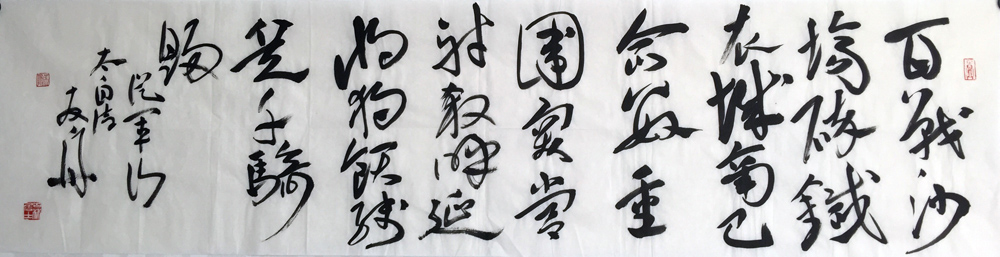 百戰沙
場碎鐵
衣城南已
合數重
圍突營
射殺呼延
將獨領殘
兵千騎
歸
從軍行
太白诗